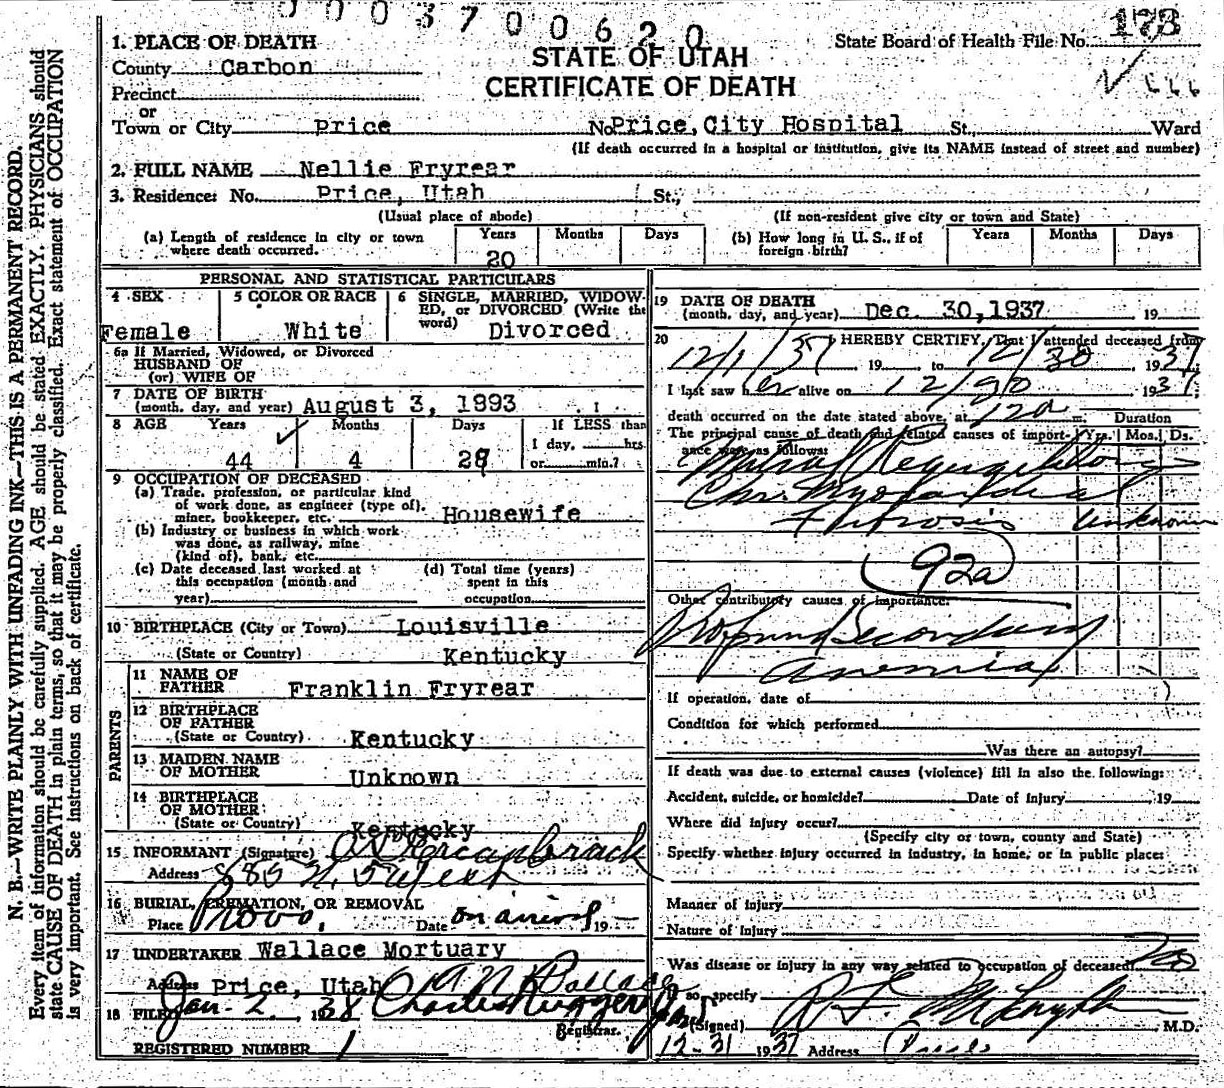 0003700620
173
State Board of Health File No.
STATE OF UTAH
CERTIFICATE OF DEATH
1. PLACE OF DEATH
County Carbon
Precinct
or
Town or City Price No. Price, City Hospital St., Ward
(If death occurred in a hospital or institution, give its NAME instead of street and number)
2. FULL NAME Nellie Fryrear
3. Residence: No. Price, Utah St.,
(Usual place of abode) (If non-resident give city or town and State)
(a) Length of residence in city or town where death occurred. Years 20 Months Days
(b) How long in U. S., if of foreign birth? Years Months Days
PERSONAL AND STATISTICAL PARTICULARS
4 SEX Female
5 COLOR OR RACE White
6 SINGLE, MARRIED, WIDOWED, or DIVORCED (Write the word) Divorced
6a If Married, Widowed, or Divorced
HUSBAND OF
(or) WIFE OF
7 DATE OF BIRTH
(month, day, and year) August 3, 1893
8 AGE Years Months Days If LESS than
1 day, hrs.
44 4 28 or min.?
9 OCCUPATION OF DECEASED
(a) Trade, profession, or particular kind
of work done, as engineer (type of),
miner, bookkeeper, etc. Housewife
(b) Industry or business in which work
was done, as railway, mine
(kind of), bank, etc.
(c) Date deceased last worked at
this occupation (month and
year)
(d) Total time (years)
spent in this
occupation
10 BIRTHPLACE (City or Town) Louisville
(State or Country) Kentucky
PARENTS
11 NAME OF
FATHER Franklin Fryrear
12 BIRTHPLACE
OF FATHER
(State or Country) Kentucky
13 MAIDEN NAME
OF MOTHER Unknown
14 BIRTHPLACE
OF MOTHER
(State or Country) Kentucky
15 INFORMANT (Signature)
Address
16 BURIAL, CREMATION, OR REMOVAL
Place Provo, Date on arrival 19
17 UNDERTAKER Wallace Mortuary
Address Price, Utah
18 FILED Jan. 2, 1938
Registrar.
REGISTERED NUMBER 1
19 DATE OF DEATH
(month, day, and year) Dec. 30, 1937 19
20 I HEREBY CERTIFY, That I attended deceased from
12/1/37 19 to 12/30 1937
I last saw her alive on 12/30 1937
death occurred on the date stated above, at 120 m. Duration
The principal cause of death and related causes of importance were as follows: Yrs. Mos. Ds.
Mitral Regurgitation
Chr. Myocardial
Fibrosis Unknown
92a
Other contributory causes of importance:
Profound Secondary
anemia
If operation, date of
Condition for which performed
Was there an autopsy?
If death was due to external causes (violence) fill in also the following:
Accident, suicide, or homicide? Date of injury 19
Where did injury occur?
(Specify city or town, county and State)
Specify whether injury occurred in industry, in home, or in public place:
Manner of injury
Nature of injury
Was disease or injury in any way related to occupation of deceased?
If so, specify
(Signed) M.D.
12-31 1937 Address Price
N. B.—WRITE PLAINLY WITH UNFADING INK—THIS IS A PERMANENT RECORD.
Every item of information should be carefully supplied. AGE should be stated EXACTLY. PHYSICIANS should
state CAUSE OF DEATH in plain terms, so that it may be properly classified. Exact statement of OCCUPATION
is very important. See instructions on back of certificate.